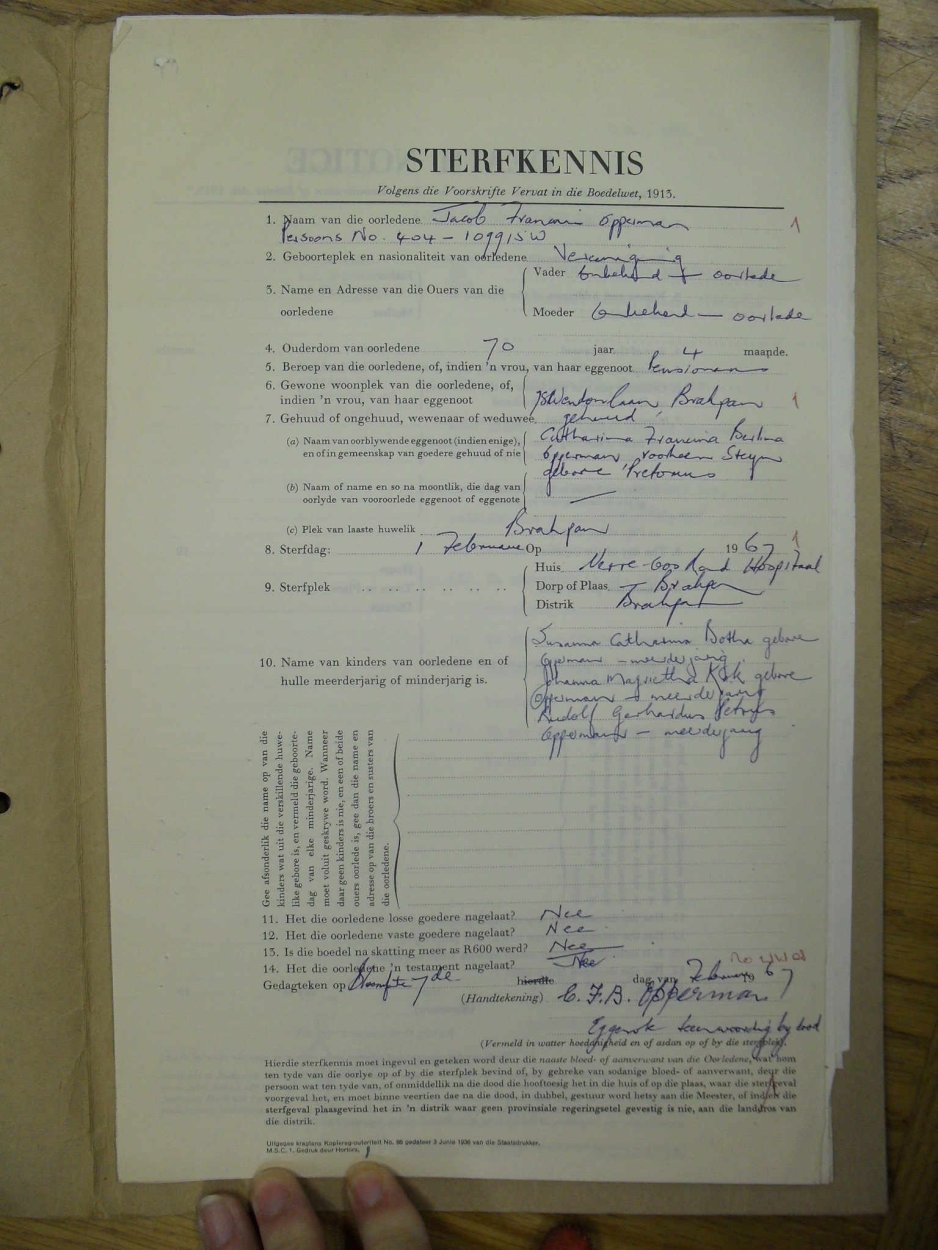 STERFKENNIS
Volgens die Voorskrifte Vervat in die Boedelwet, 1913.
1. Naam van die oorledene Jacob Opperman 1
Persoons No. 404 - 109915W
2. Geboorteplek en nasionaliteit van oorledene Vereeniging
3. Name en Adresse van die Ouers van die oorledene
Vader Onbekend - oorlede
Moeder Onbekend - oorlede
4. Ouderdom van oorledene 70 jaar 4 maande.
5. Beroep van die oorledene, of, indien 'n vrou, van haar eggenoot Pensionaris
6. Gewone woonplek van die oorledene, of, indien 'n vrou, van haar eggenoot Brakpan 1
7. Gehuud of ongehuud, wewenaar of weduwee gehuud
(a) Naam van oorblywende eggenoot (indien enige), en of in gemeenskap van goedere gehuud of nie
Catharina Francina
Opperman voorheen Steyn
gebore Pretorius
(b) Naam of name en so na moontlik, die dag van oorlyde van vooroorlede eggenoot of eggenote —
(c) Plek van laaste huwelik Brakpan
8. Sterfdag: 1 Februarie Op 1967 1
9. Sterfplek .. .. .. .. .. ..
Huis Verre-Oos Rand Hospitaal
Dorp of Plaas Brakpan
Distrik Brakpan
10. Name van kinders van oorledene en of hulle meerderjarig of minderjarig is.
Susanna Catharina Botha gebore
Opperman - meerderjarig
Johanna Magrietha Kok gebore
Opperman - meerderjarig
Rudolf Gerhardus Petrus
Opperman - meerderjarig
Gee afsonderlik die name op van die
kinders wat uit die verskillende huwe-
like gebore is, en vermeld die geboorte-
dag van elke minderjarige. Name
moet voluit geskrywe word. Wanneer
daar geen kinders is nie, en een of beide
ouers oorlede is, gee dan die name en
adresse op van die broers en susters van
die oorledene.
11. Het die oorledene losse goedere nagelaat? Nee
12. Het die oorledene vaste goedere nagelaat? Nee
13. Is die boedel na skatting meer as R600 werd? Nee
14. Het die oorledene 'n testament nagelaat? Nee
Gedagteken op 7de hierdie dag van Februarie 67
(Handtekening) C. F. B. Opperman
Eggenote teenwoordig by dood
(Vermeld in watter hoedanigheid en of asdan op of by die sterfplek).
Hierdie sterfkennis moet ingevul en geteken word deur die naaste bloed- of aanverwant van die Oorledene, wat hom
ten tyde van die oorlye op of by die sterfplek bevind of, by gebreke van sodanige bloed- of aanverwant, deur die
persoon wat ten tyde van, of onmiddellik na die dood die hooftoesig het in die huis of op die plaas, waar die sterfgeval
voorgeval het, en moet binne veertien dae na die dood, in dubbel, gestuur word hetsy aan die Meester, of indien die
sterfgeval plaasgevind het in 'n distrik waar geen provinsiale regeringsetel gevestig is nie, aan die landdros van
die distrik.
Uitgegee kragtens Kopiereg-outoriteit No. 66 gedateer 3 Junie 1936 van die Staatsdrukker.
M.S.C. 1. Gedruk deur Hortors.